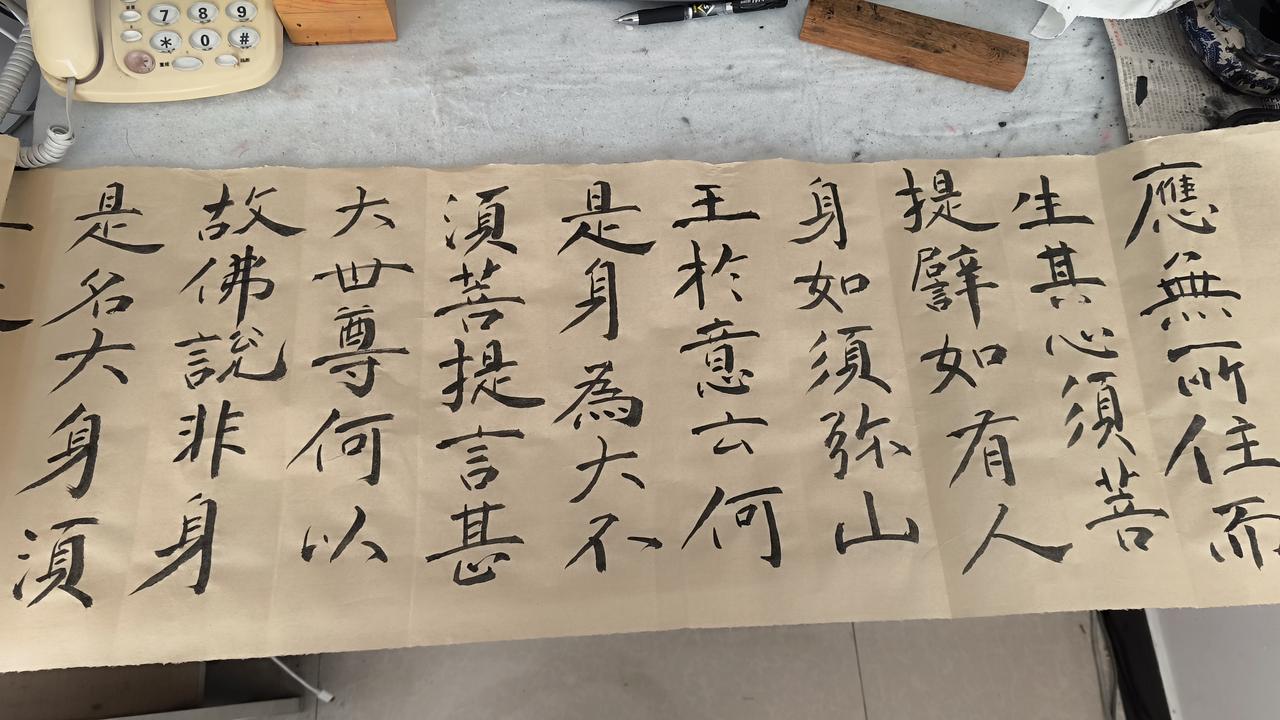 應無所住而
生其心須菩
提譬如有人
身如須弥山
王於意云何
是身為大不
須菩提言甚
大世尊何以
故佛說非身
是名大身須
7 8 9
* 0 #